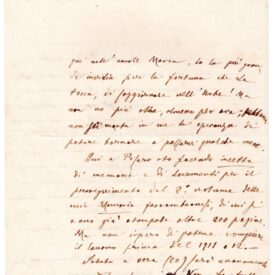 qui nell' umile Marca, io la più gran-
de invidia per la fortuna che Le
tocca, di soggiornare nell' Urbe! Ma
non ho più oltre, almeno per ora, sebbene
non sia morta in me la speranza di
potere tornare a passarvi qualche mese.
Qui a Pesaro sto facendo incetta
di memorie e di documenti per il
proseguimento del 2° volume delle
mie Memorie, di cui si
sono già stampate oltre 200 pagine.
Ma non ispero di potere compiere
il lavoro prima del 1911 o 12.
Sabato a sera